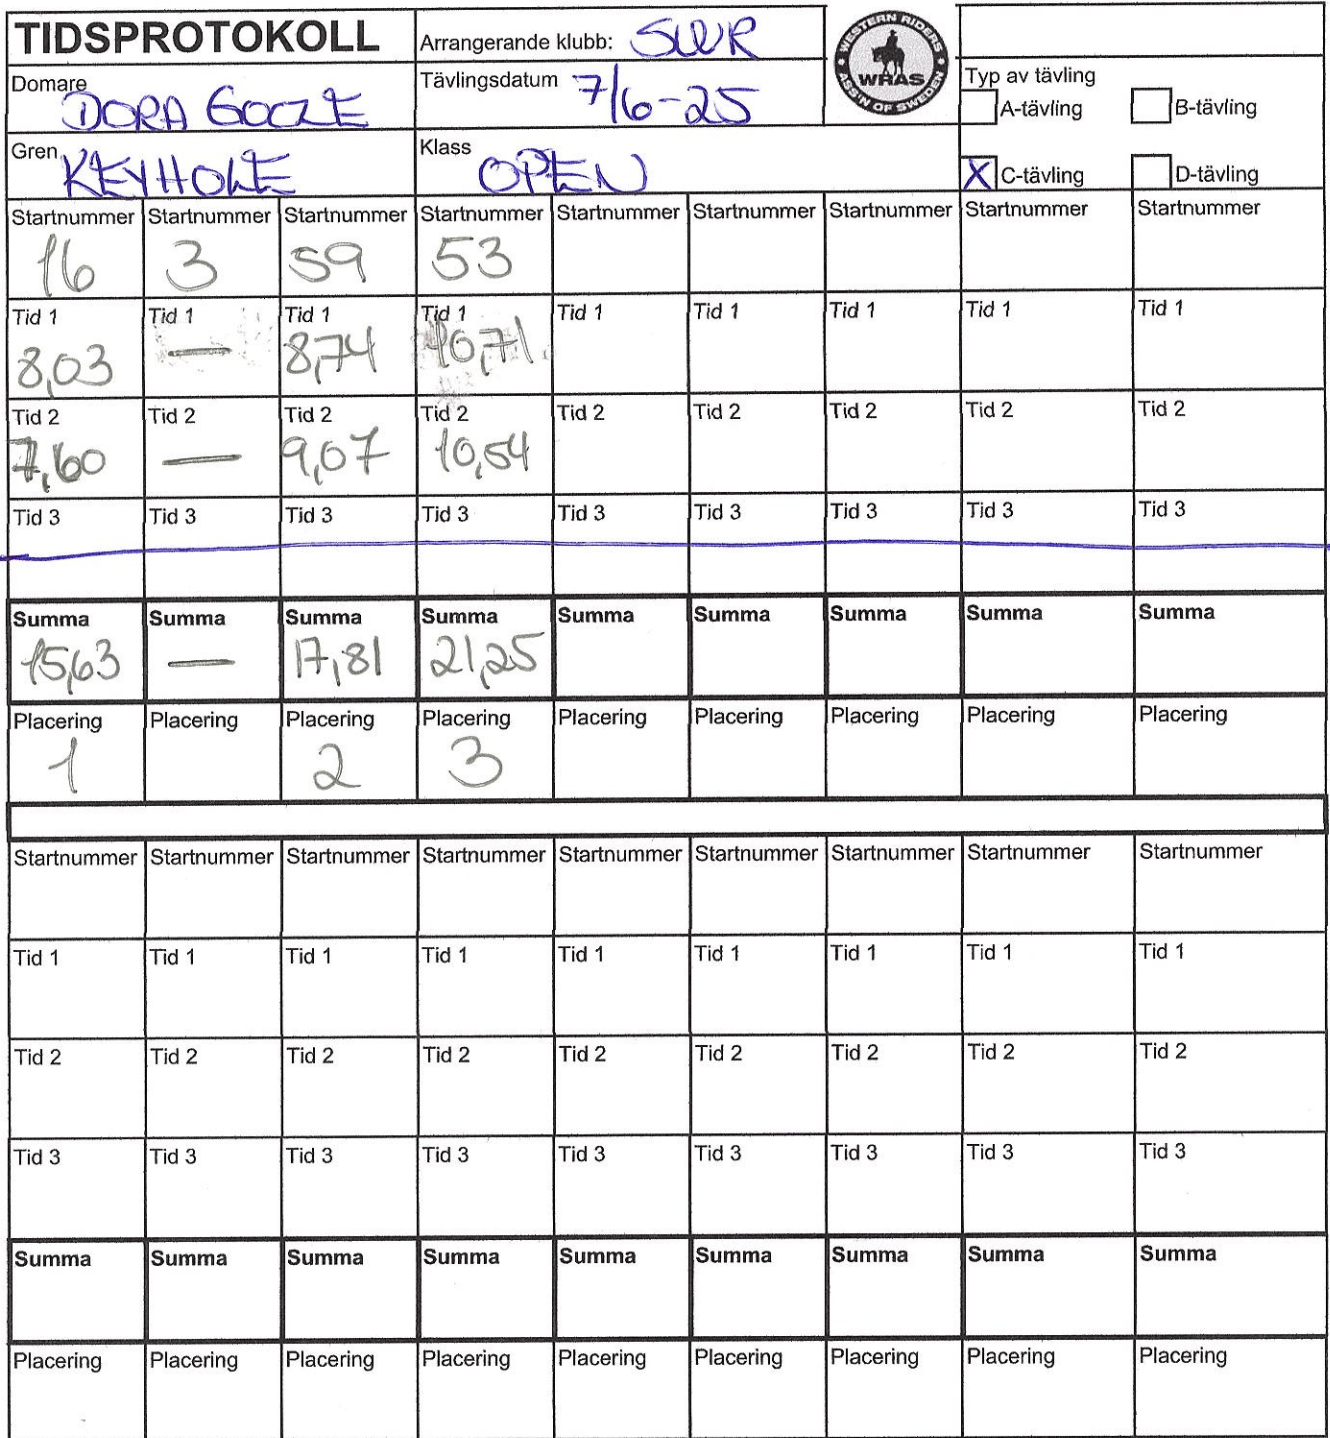 TIDSPROTOKOLL
Arrangerande klubb: SWR
WESTERN RIDERS
WRAS
ASS'N OF SWEDEN
Domare DORA GOCZE
Tävlingsdatum 7/6-25
Typ av tävling
A-tävling B-tävling
Gren KEYHOLE
Klass OPEN
X C-tävling D-tävling
Startnummer Startnummer Startnummer Startnummer Startnummer Startnummer Startnummer Startnummer Startnummer
16 3 59 53
Tid 1 Tid 1 Tid 1 Tid 1 Tid 1 Tid 1 Tid 1 Tid 1 Tid 1
8,03 — 8,74 10,71
Tid 2 Tid 2 Tid 2 Tid 2 Tid 2 Tid 2 Tid 2 Tid 2 Tid 2
7,60 — 9,07 10,54
Tid 3 Tid 3 Tid 3 Tid 3 Tid 3 Tid 3 Tid 3 Tid 3 Tid 3
Summa Summa Summa Summa Summa Summa Summa Summa Summa
15,63 — 17,81 21,25
Placering Placering Placering Placering Placering Placering Placering Placering Placering
1 2 3
Startnummer Startnummer Startnummer Startnummer Startnummer Startnummer Startnummer Startnummer Startnummer
Tid 1 Tid 1 Tid 1 Tid 1 Tid 1 Tid 1 Tid 1 Tid 1 Tid 1
Tid 2 Tid 2 Tid 2 Tid 2 Tid 2 Tid 2 Tid 2 Tid 2 Tid 2
Tid 3 Tid 3 Tid 3 Tid 3 Tid 3 Tid 3 Tid 3 Tid 3 Tid 3
Summa Summa Summa Summa Summa Summa Summa Summa Summa
Placering Placering Placering Placering Placering Placering Placering Placering Placering